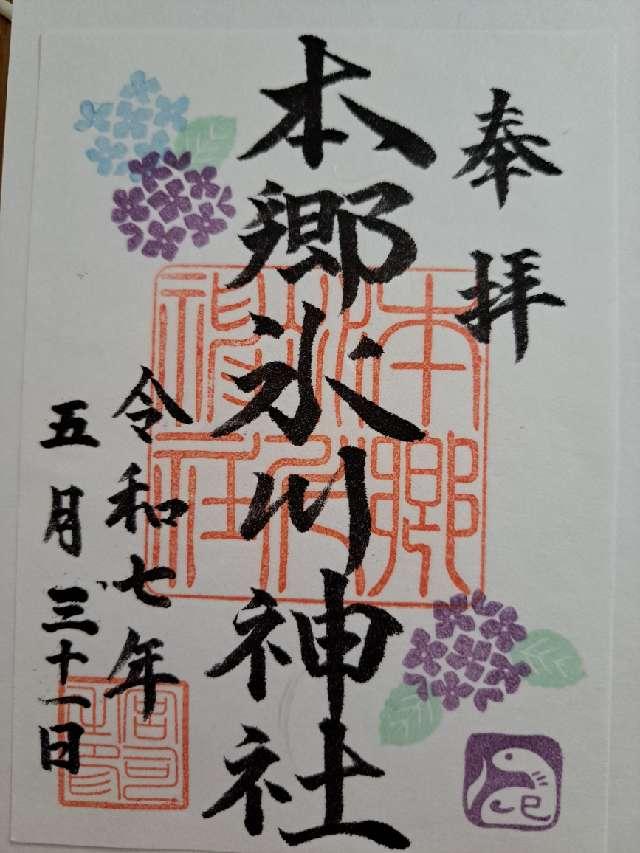 奉拝
本郷氷川神社
令和七年
五月三十一日
本郷
氷川
神社
巳